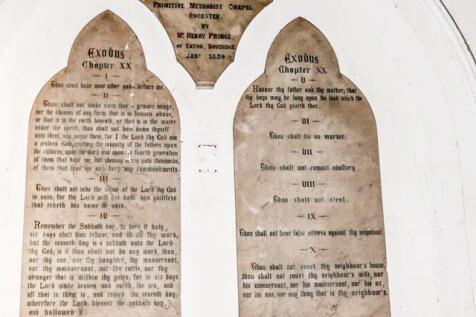 PRIMITIVE METHODIST CHAPEL
ROCESTER,
BY
Mr HENRY PRINCE,
OF EATON, DOVERIDGE
JANy 1859
Exodus
Chapter XX
I
Thou shalt have none other gods before me.
II
Thou shalt not make unto thee graven image,
nor the likeness of any form that is in heaven above,
or that is in the earth beneath, or that is in the water
under the earth: thou shalt not bow down thyself
unto them, nor serve them, for I the Lord thy God am
a jealous God, visiting the iniquity of the fathers upon
the children, upon the third and upon the fourth generation
of them that hate me, and shewing mercy unto thousands,
of them that love me and keep my commandments.
III
Thou shalt not take the name of the Lord thy God
in vain; for the Lord will not hold him guiltless
that taketh his name in vain.
IV
Remember the Sabbath day, to keep it holy,
six days shalt thou labour, and do all thy work,
but the seventh day is a sabbath unto the Lord
thy God, in it thou shalt not do any work, thou,
nor thy son, nor thy daughter, thy manservant,
nor thy maidservant, nor thy cattle, nor thy
stranger that is within thy gates, for in six days
the Lord made heaven and earth, the sea, and
all that in them is, and rested the seventh day
wherefore the Lord blessed the sabbath day,
and hallowed it
Exodus
Chapter XX
V
Honour thy father and thy mother; that
thy days may be long upon the land which the
Lord thy God giveth thee.
VI
Thou shalt do no murder.
VII
Thou shalt not commit adultery.
VIII
Thou shalt not steal.
IX
Thou shalt not bear false witness against thy neighbour.
X
Thou shalt not covet thy neighbour's house,
thou shalt not covet thy neighbour's wife, nor
his manservant, nor his maidservant, nor his ox,
nor his ass, nor any thing that is thy neighbour's.